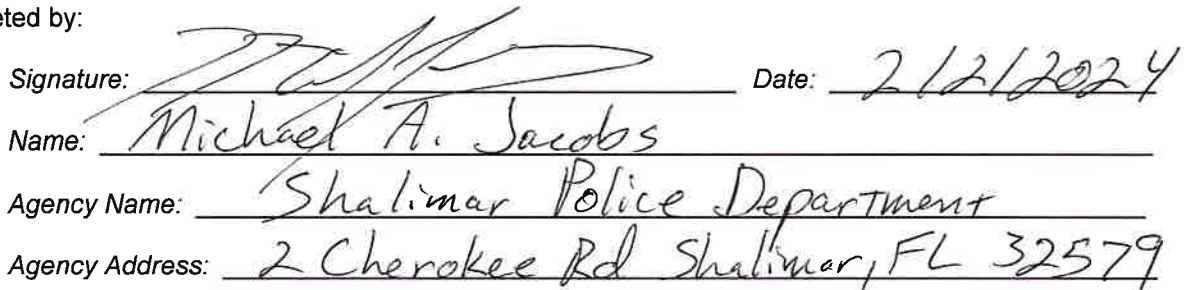 eted by:
Signature: Date: 2/2/2024
Name: Michael A. Jacobs
Agency Name: Shalimar Police Department
Agency Address: 2 Cherokee Rd Shalimar, FL 32579